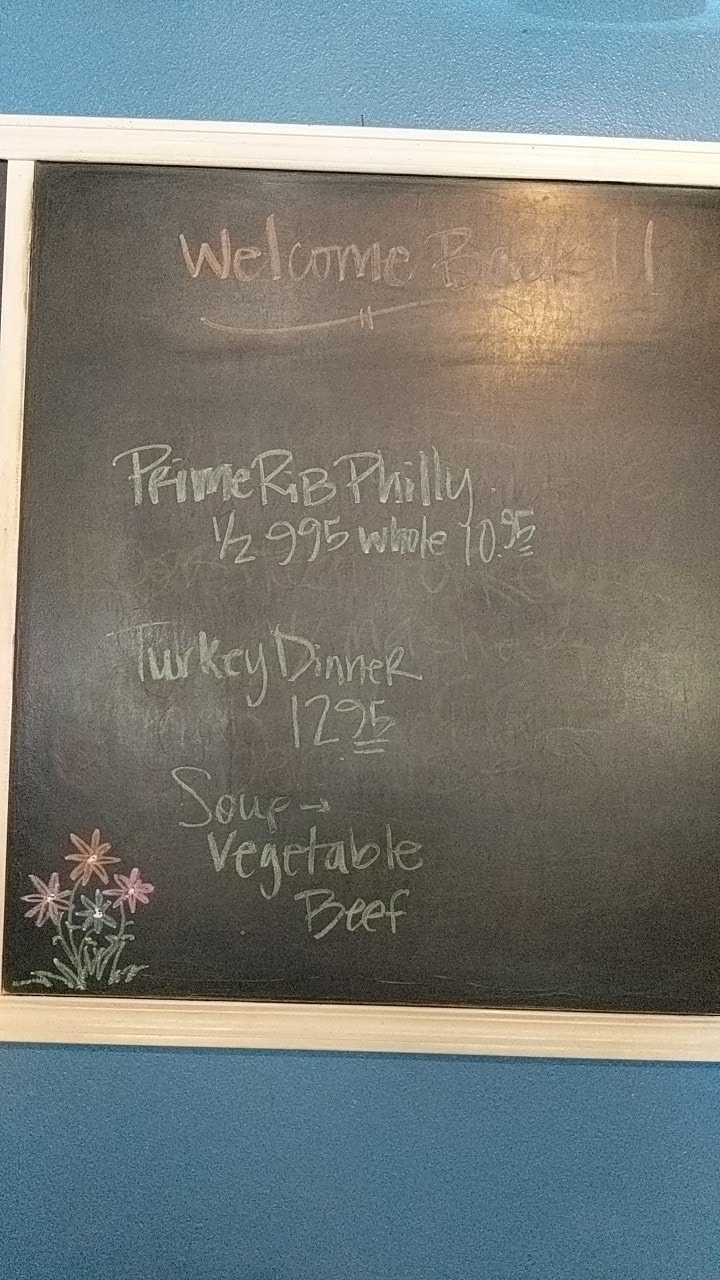 Welcome Back!!
Prime Rib Philly
1/2 995 whole 10.95
Turkey Dinner
1295
Soup →
Vegetable
Beef